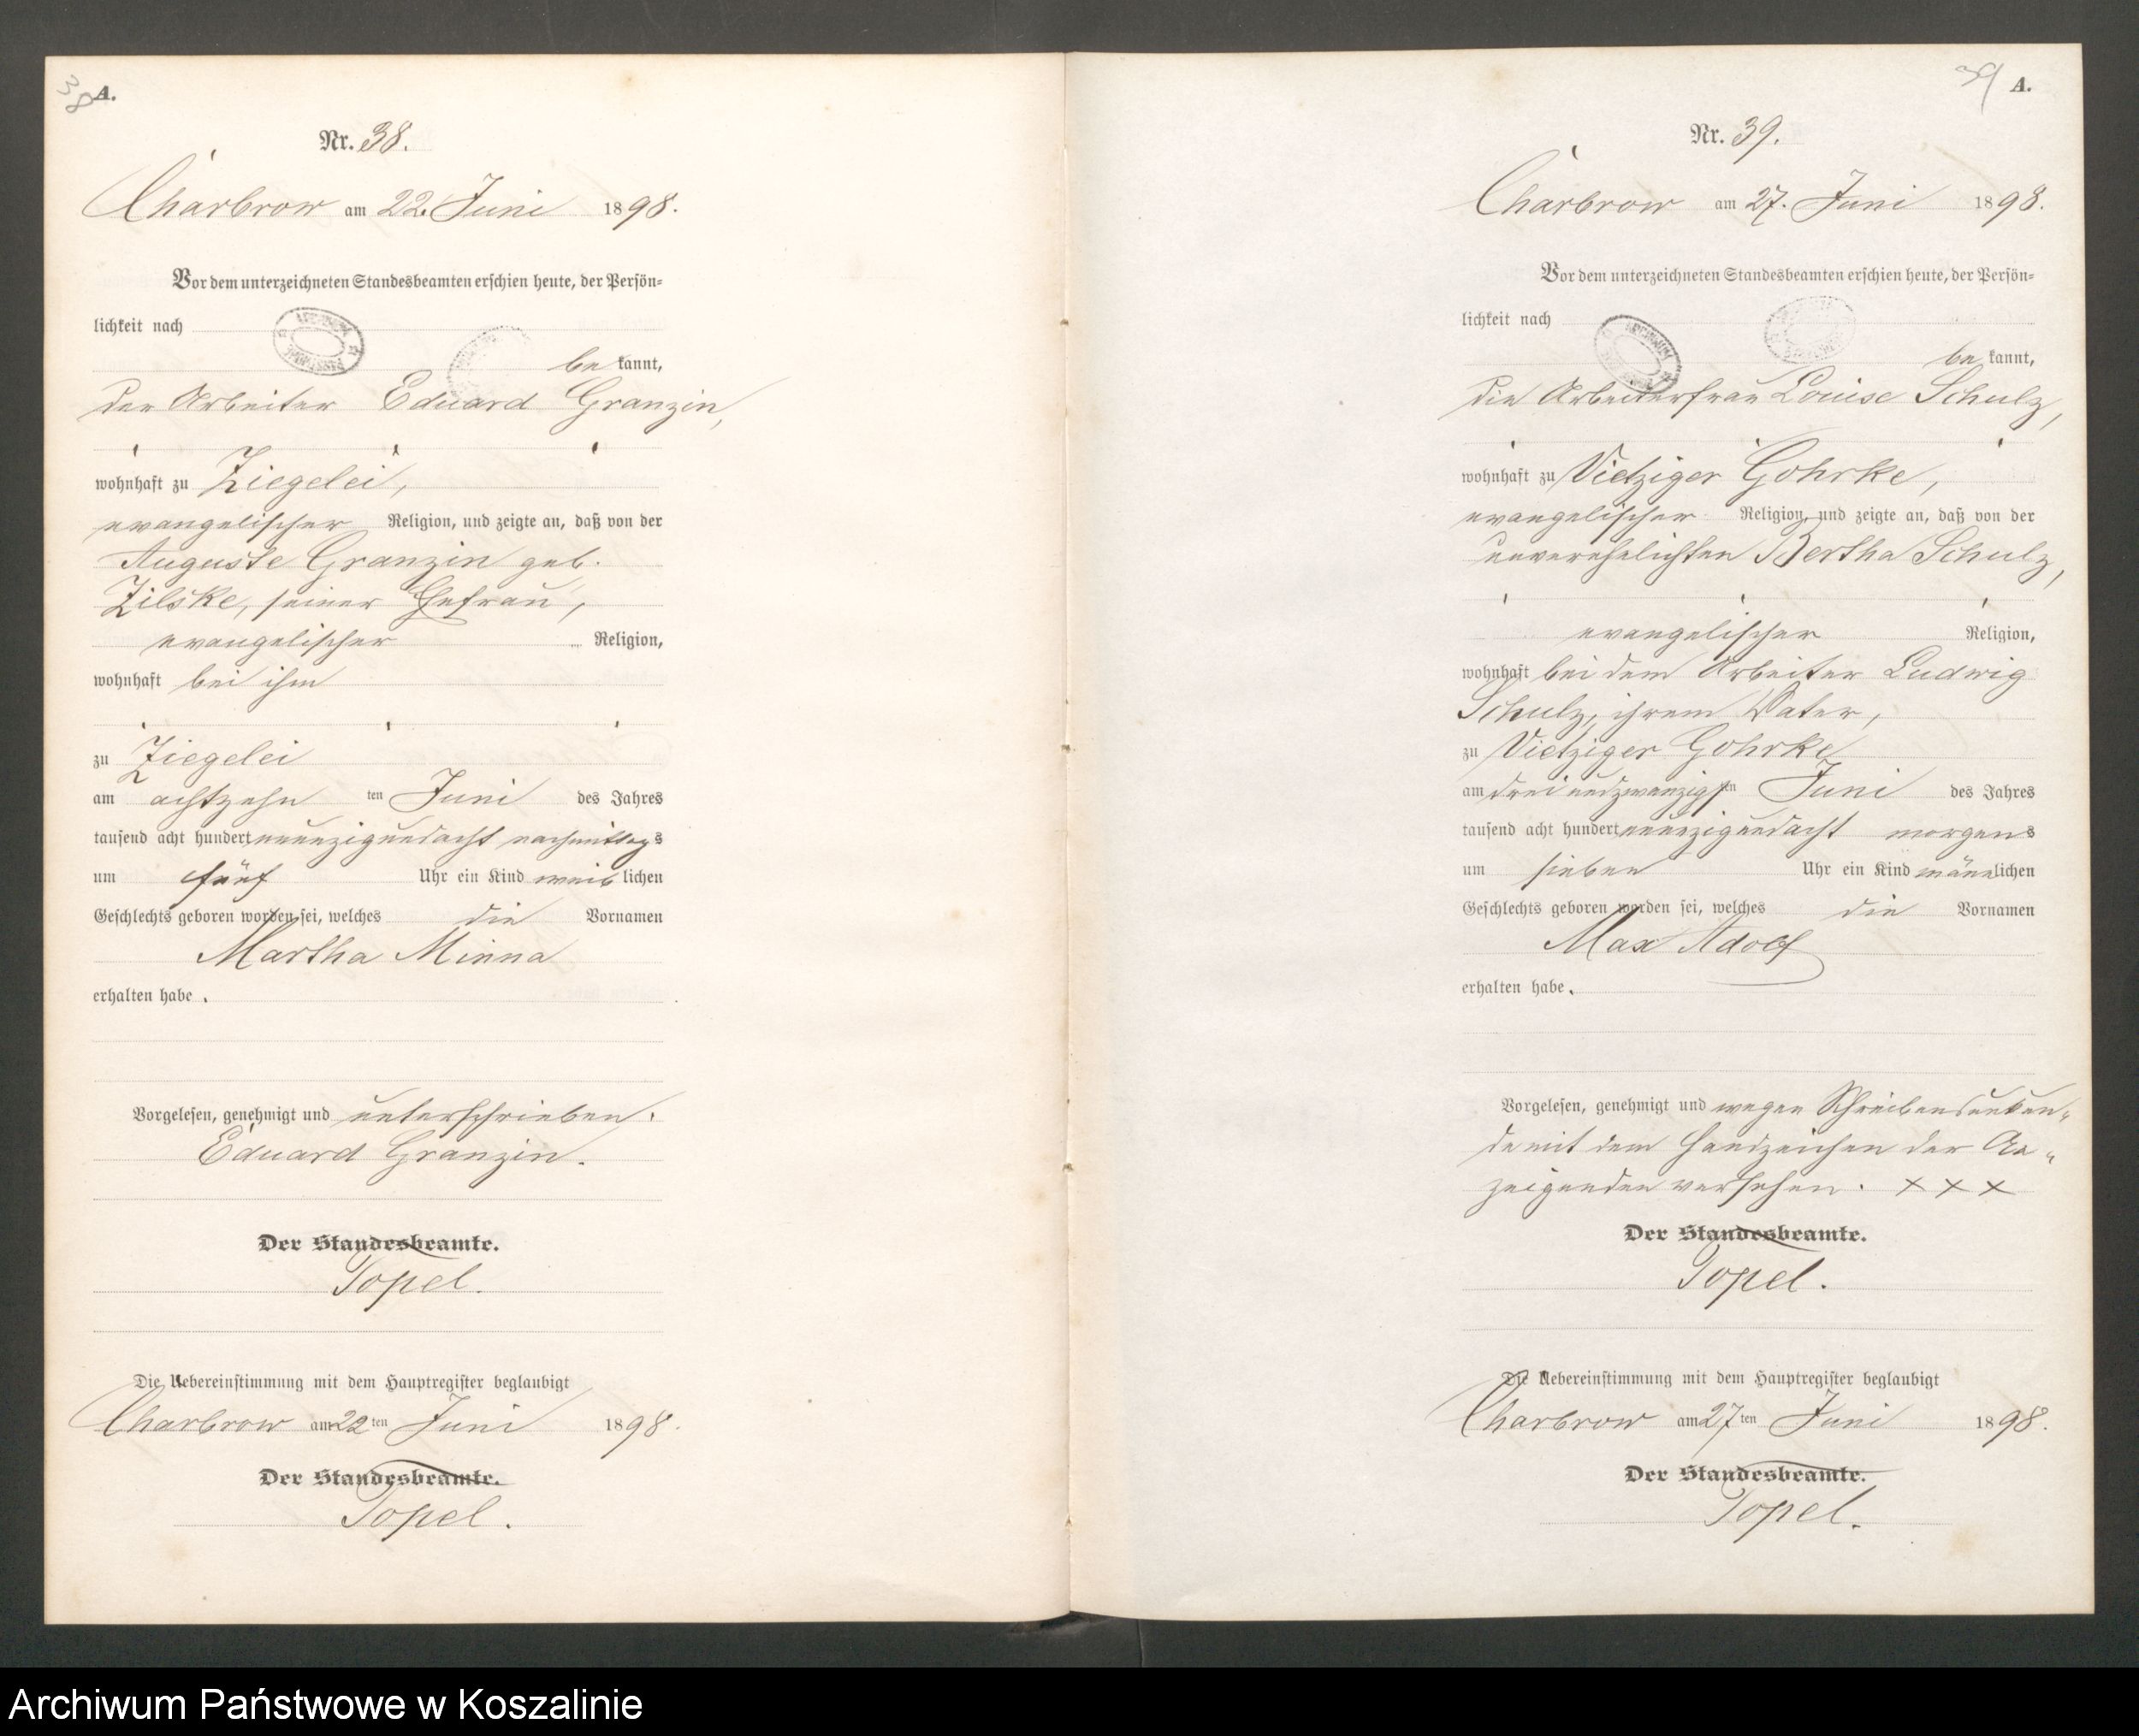 38 A.
Nr. 38.
Charbrow am 22. Juni 1898.
Vor dem unterzeichneten Standesbeamten erschien heute, der Persön=
lichkeit nach
be kannt,
der Arbeiter Eduard Granzin,
wohnhaft zu Ziegelei,
evangelischer Religion, und zeigte an, daß von der
Auguste Granzin geb.
Zilske, seiner Ehefrau,
evangelischer Religion,
wohnhaft bei ihm
zu Ziegelei
am achtzehn ten Juni des Jahres
tausend acht hundert neunzigundacht nachmittags
um fünf Uhr ein Kind weib lichen
Geschlechts geboren worden sei, welches die Vornamen
Martha Minna
erhalten habe.
Vorgelesen, genehmigt und unterschrieben.
Eduard Granzin.
Der Standesbeamte.
Topel.
Die Uebereinstimmung mit dem Hauptregister beglaubigt
Charbrow am 22 ten Juni 1898.
Der Standesbeamte.
Topel.
39 A.
Nr. 39.
Charbrow am 27. Juni 1898.
Vor dem unterzeichneten Standesbeamten erschien heute, der Persön=
lichkeit nach
be kannt,
die Arbeiterfrau Louise Schulz,
wohnhaft zu Vietziger Gohrke,
evangelischer Religion, und zeigte an, daß von der
unverehelichten Bertha Schulz,
evangelischer Religion,
wohnhaft bei dem Arbeiter Ludwig
Schulz, ihrem Vater,
zu Vietziger Gohrke
am dreiundzwanzigsten Juni des Jahres
tausend acht hundert neunzigundacht morgens
um sieben Uhr ein Kind männlichen
Geschlechts geboren worden sei, welches die Vornamen
Max Adolf
erhalten habe.
Vorgelesen, genehmigt und wegen Schreibensunkun=
de mit dem Handzeichen der An=
zeigenden versehen. X X X
Der Standesbeamte.
Topel.
Die Uebereinstimmung mit dem Hauptregister beglaubigt
Charbrow am 27 ten Juni 1898.
Der Standesbeamte.
Topel.
Archiwum Państwowe w Koszalinie